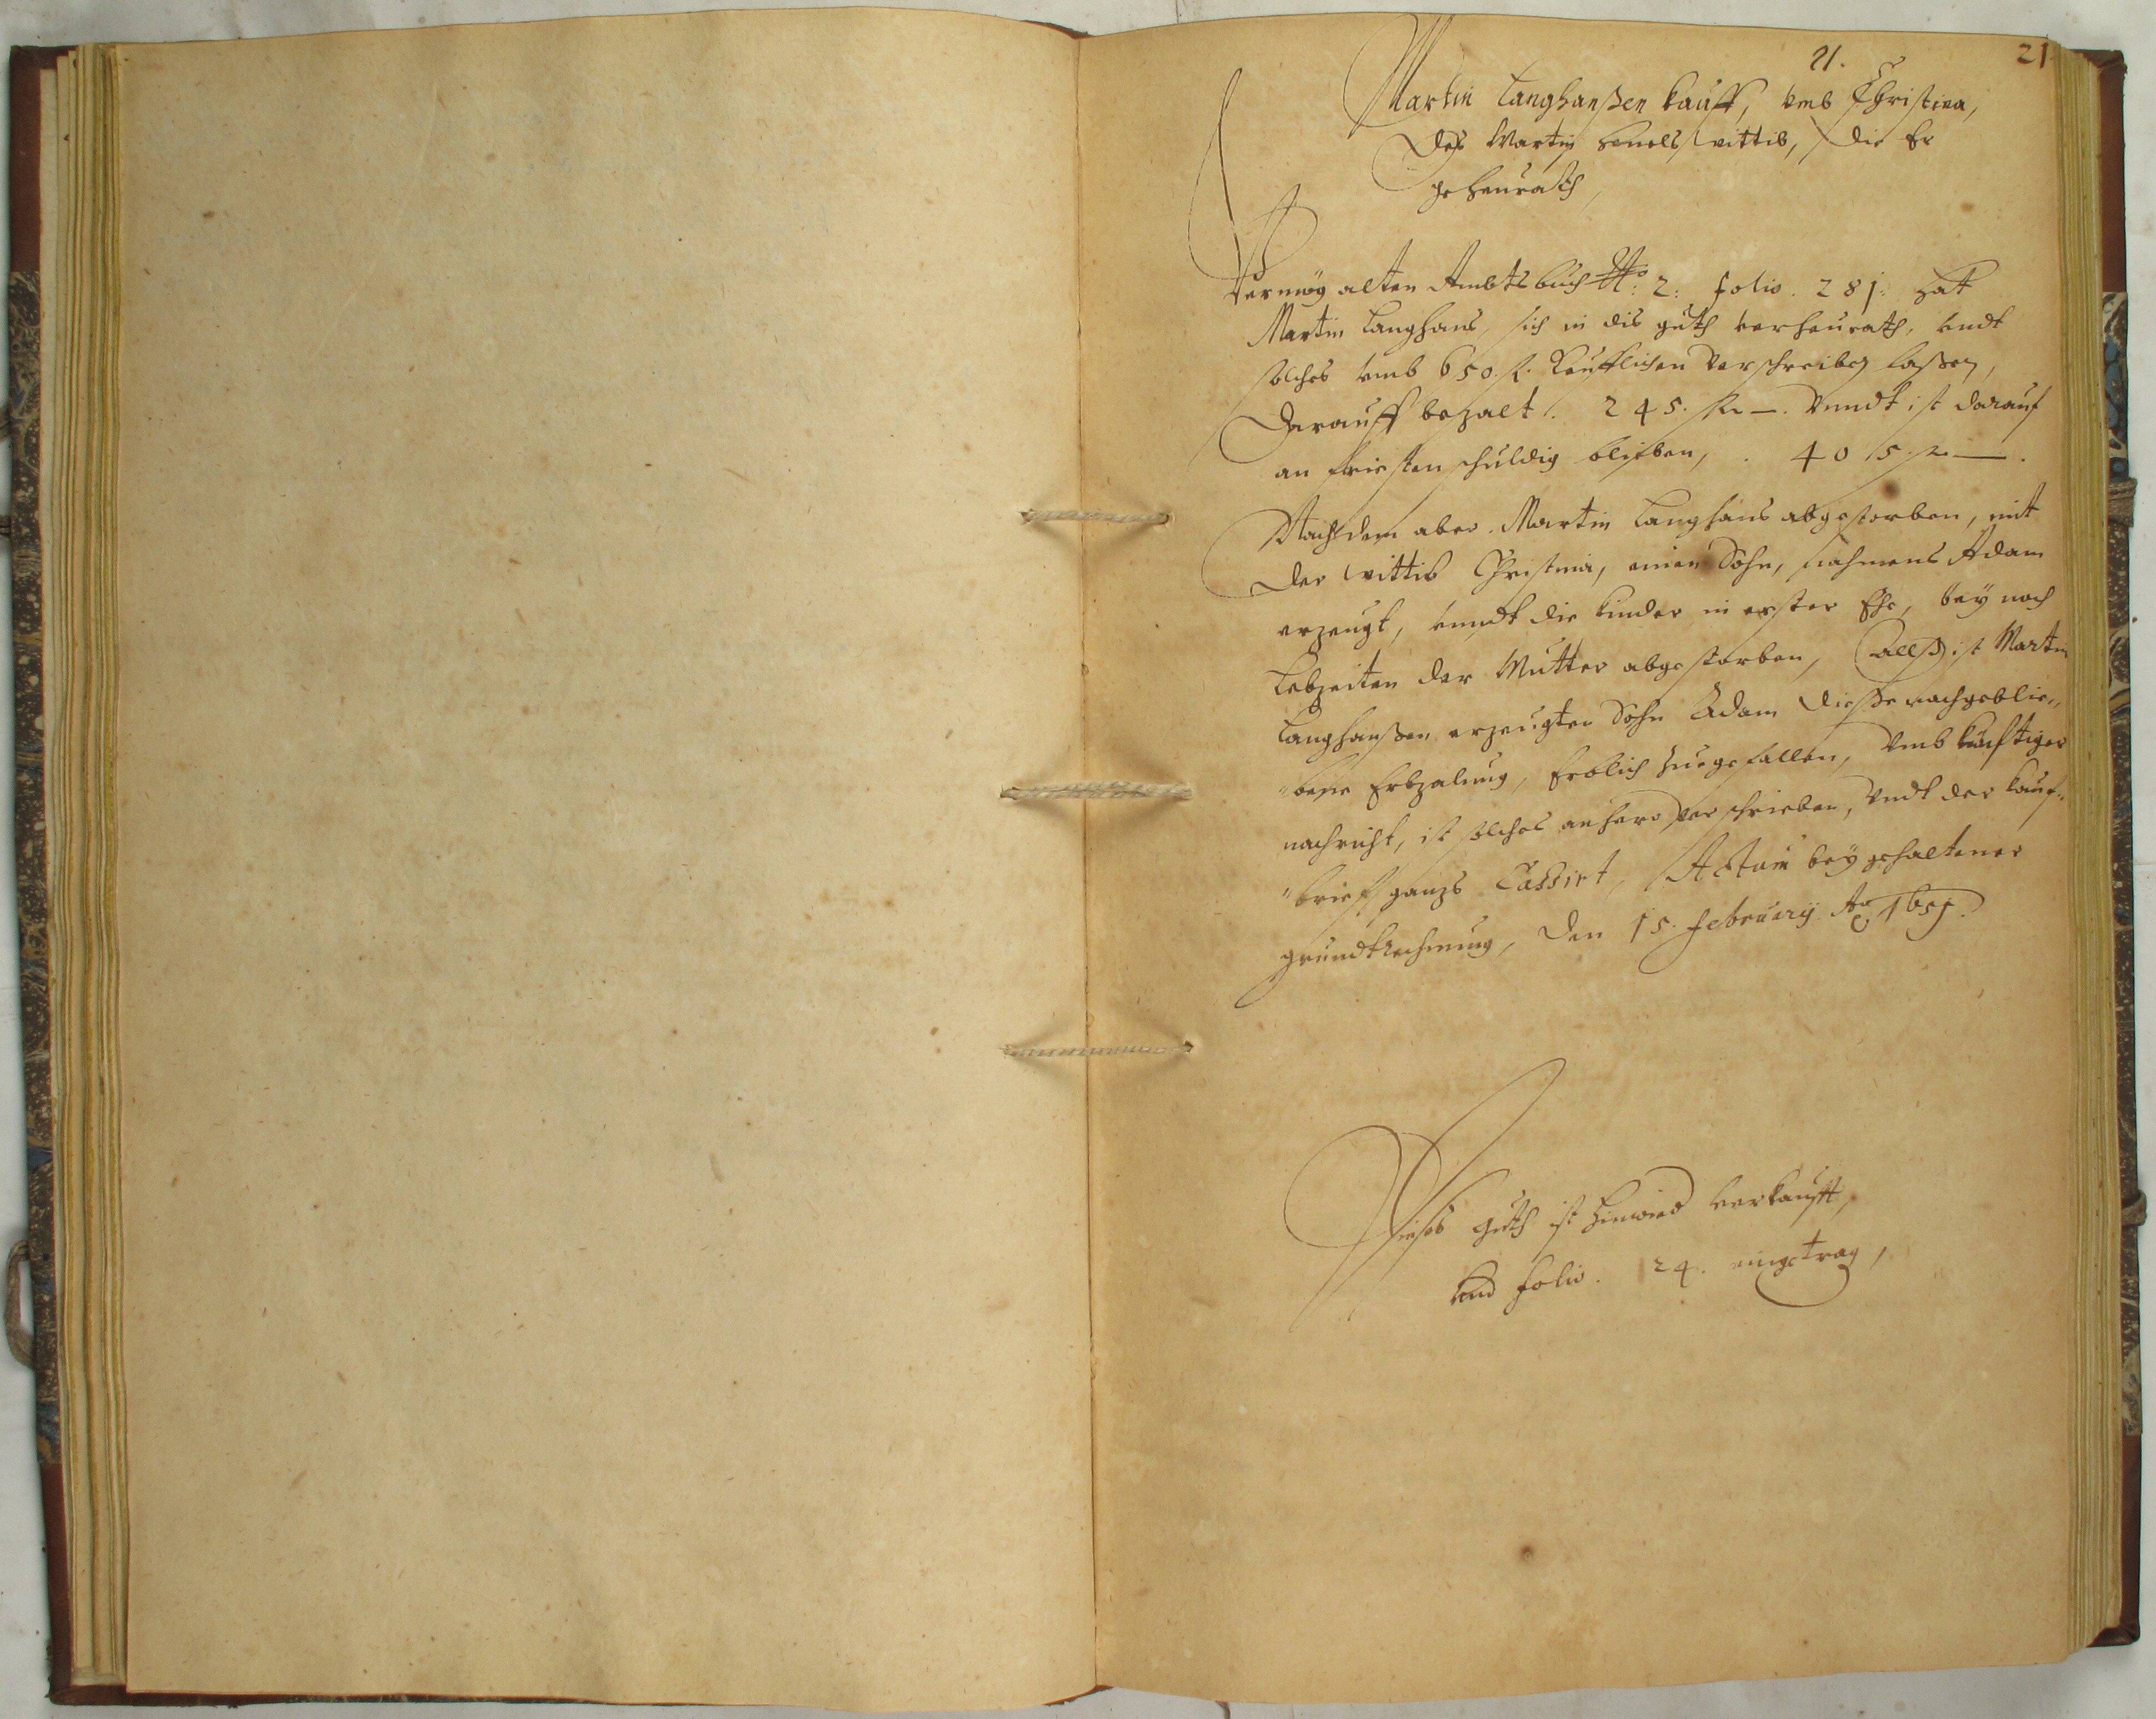 21. 21
Martin Langhanßen kauff, vmb Christina,
des Martin Henels wittib, die Er
geheurath,
Vermög alten Ambtsbuch No: 2: folio. 281: hat
Martin Langhans, sich in dis guth verheurath, vndt
solches vmb 650. ß. Keufflichen Verschreiben laßen,
Darauff bezalt. 245. ß. —. Vnndt ist darauf
an fristen schuldig blieben, . 405. ß. — .
Nachdem aber. Martin Langhans abgestorben, mit
der wittib Christina, einen Sohn, nahmens Adam
erzeugt, vnndt die kinder in erster Ehe, bey noch
Lebzeiten der Mutter abgestorben, Allß ist Martin
Langhanßen erzeugten Sohn Adam diesße nachgeblie„
„bene Erbzalung, Erblich zuegefallen, Vmb künftiger
nachricht, ist solches anhero verschrieben, Vndt der kauf„
„brief gantz Cassirt, Actum bey gehaltener
grundtrechnung, den 15. february Ao. 1651.
Dieses guth ist hinwied verkaufft,
vnd folio. 24. eingetrag,